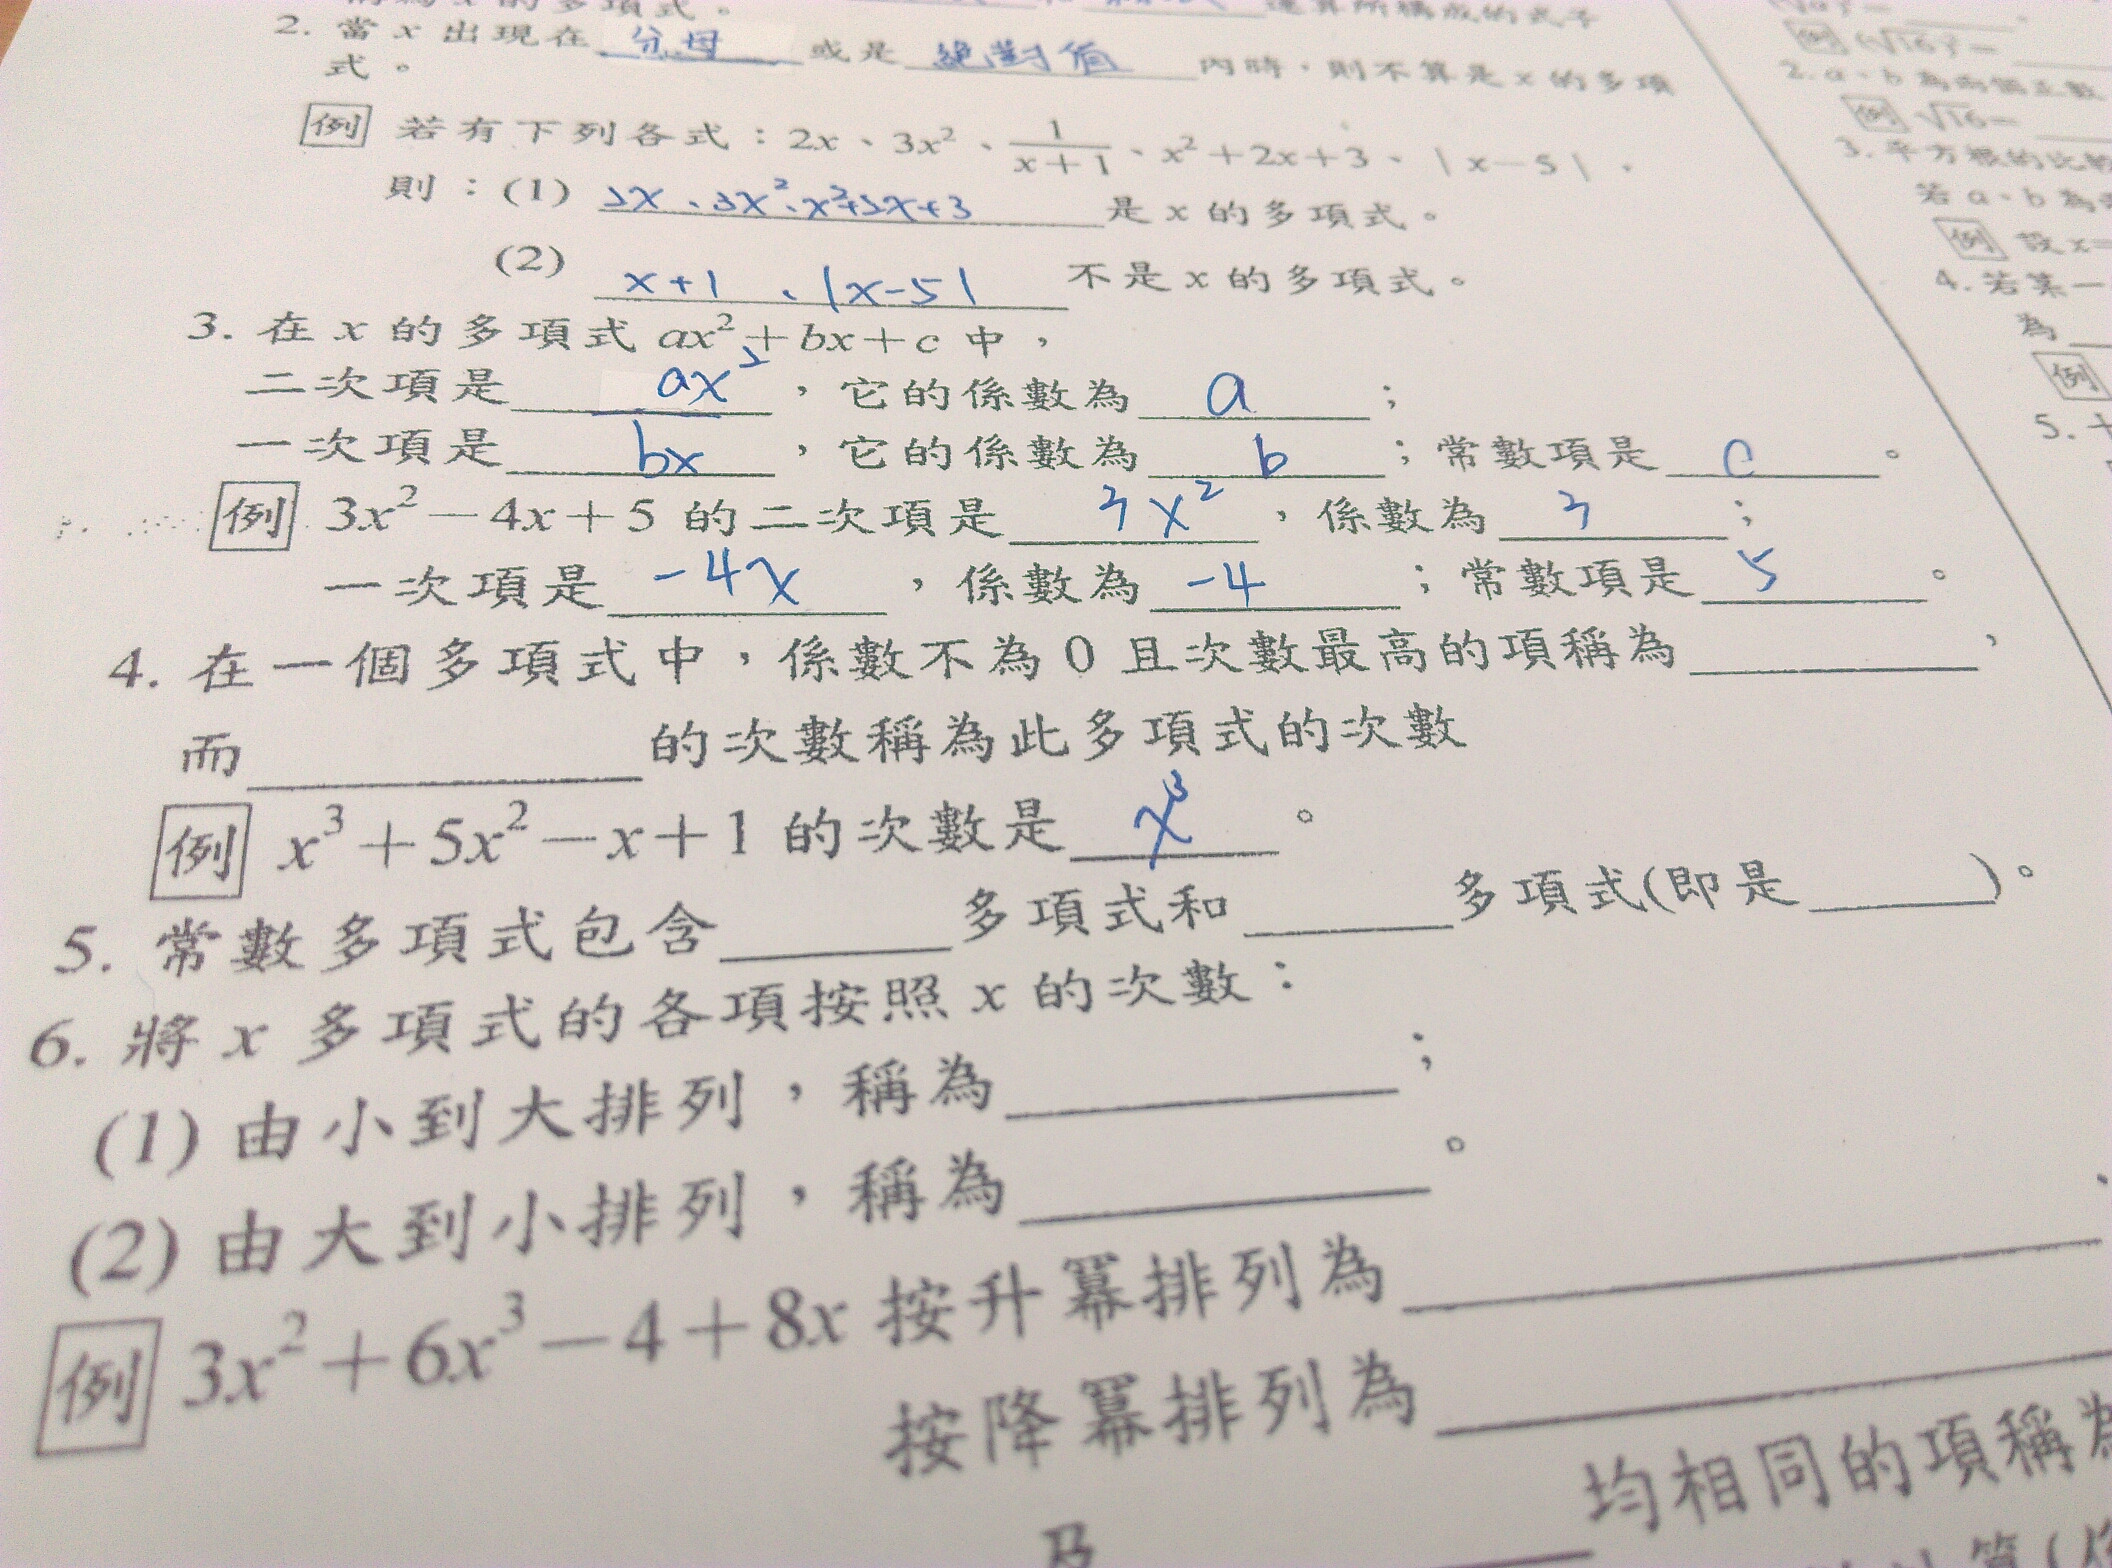 的多項式。 運算所構成的式子
2. 當 x 出現在 分母 或是 絕對值 內時，則不算是 x 的多項
式。
例 若有下列各式：2x、3x²、1/(x+1)、x²+2x+3、|x−5|，
則：(1) 2x、3x²、x²+2x+3 是 x 的多項式。
(2) x+1、|x-5| 不是 x 的多項式。
3. 在 x 的多項式 ax²+bx+c 中，
二次項是 ax²，它的係數為 a；
一次項是 bx，它的係數為 b；常數項是 c。
例 3x²−4x+5 的二次項是 3x²，係數為 3；
一次項是 -4x，係數為 -4；常數項是 5。
4. 在一個多項式中，係數不為 0 且次數最高的項稱為______，
而______的次數稱為此多項式的次數
例 x³+5x²−x+1 的次數是 x³。
5. 常數多項式包含______多項式和______多項式(即是______)。
6. 將 x 多項式的各項按照 x 的次數：
(1) 由小到大排列，稱為______；
(2) 由大到小排列，稱為______。
例 3x²+6x³−4+8x 按升冪排列為______
按降冪排列為______
均相同的項稱為
及
例 (√16)²=
2. a、b 為兩個正數
例 √16=
3. 平方根的比較
若 a、b 為
例 設 x=
4. 若某一
為
例
5. 十